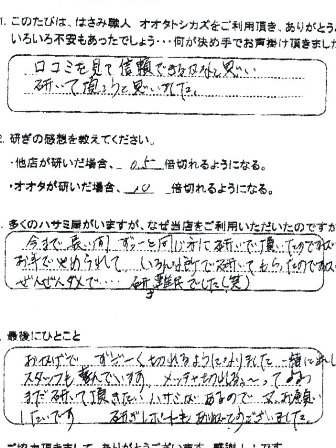 1. このたびは、はさみ職人 オオタトシカズをご利用頂き、ありがとう
いろいろ不安もあったでしょう・・・何が決め手でお声掛け頂きました
口コミを見て信頼できるかなと思い
研いで頂こうと思いました。
2. 研ぎの感想を教えてください。
・他店が研いだ場合、 0.5 倍切れるようになる。
・オオタが研いだ場合、 10 倍切れるようになる。
多くのハサミ屋がいますが、なぜ当店をご利用いただいたのですか
今まで長い間 ずーっと同じ方に研いで頂いたのですが
お年でやめられて いろんな所で研いでもらったのですが
ぜんぜんダメで・・・ 研ぎ難民でした(笑)
最後にひとこと
おかげで すごーく切れるようになりました 一緒に
スタッフも喜んでいます。メッチャ切れる〜って
まだ研いで頂きたいハサミがあるので 又、お願い
したいです ありがとうございました。
ご協力頂きまして、ありがとうございます。感謝！！です。